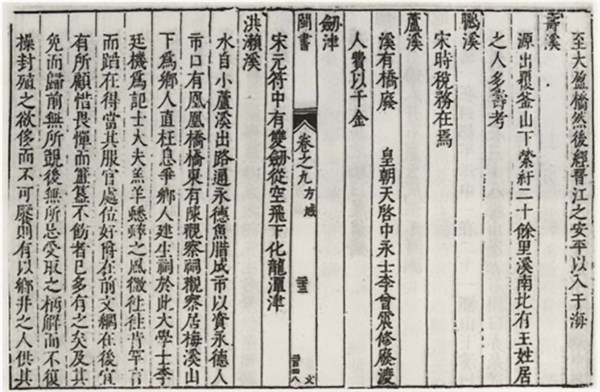 至大盈橋然後經晉江之安平以入于海
壽溪
源出覆釜山下縈紆二十餘里溪南北有王姓居
之人多壽考
鵬溪
宋時稅務在焉
蘆溪
溪有橋廢 皇朝天啓中永士李曾震修廢渡
人費以千金
閩書
卷之九方域
劒津
宋元符中有雙劒從空飛下化龍潭津
洪瀨溪
水自小蘆溪出路通永德魚腊成市以資永德人
市口有鳳凰橋橋東有陳觀察祠觀察居梅溪山
下為鄉人直枉息爭鄉人建生祠於此大學士李
廷機為記士大夫羔羊蟋蟀之風微往往皆罕言
而踣在得當其服官處位好爵在前文網在後宜
有所顧惜畏憚而簠簋不飭者已多有之矣及其
免而歸前無所覬後無所忌受取之柄解而不復
操封殖之欲侈而不可厭則有以鄉井之人供其